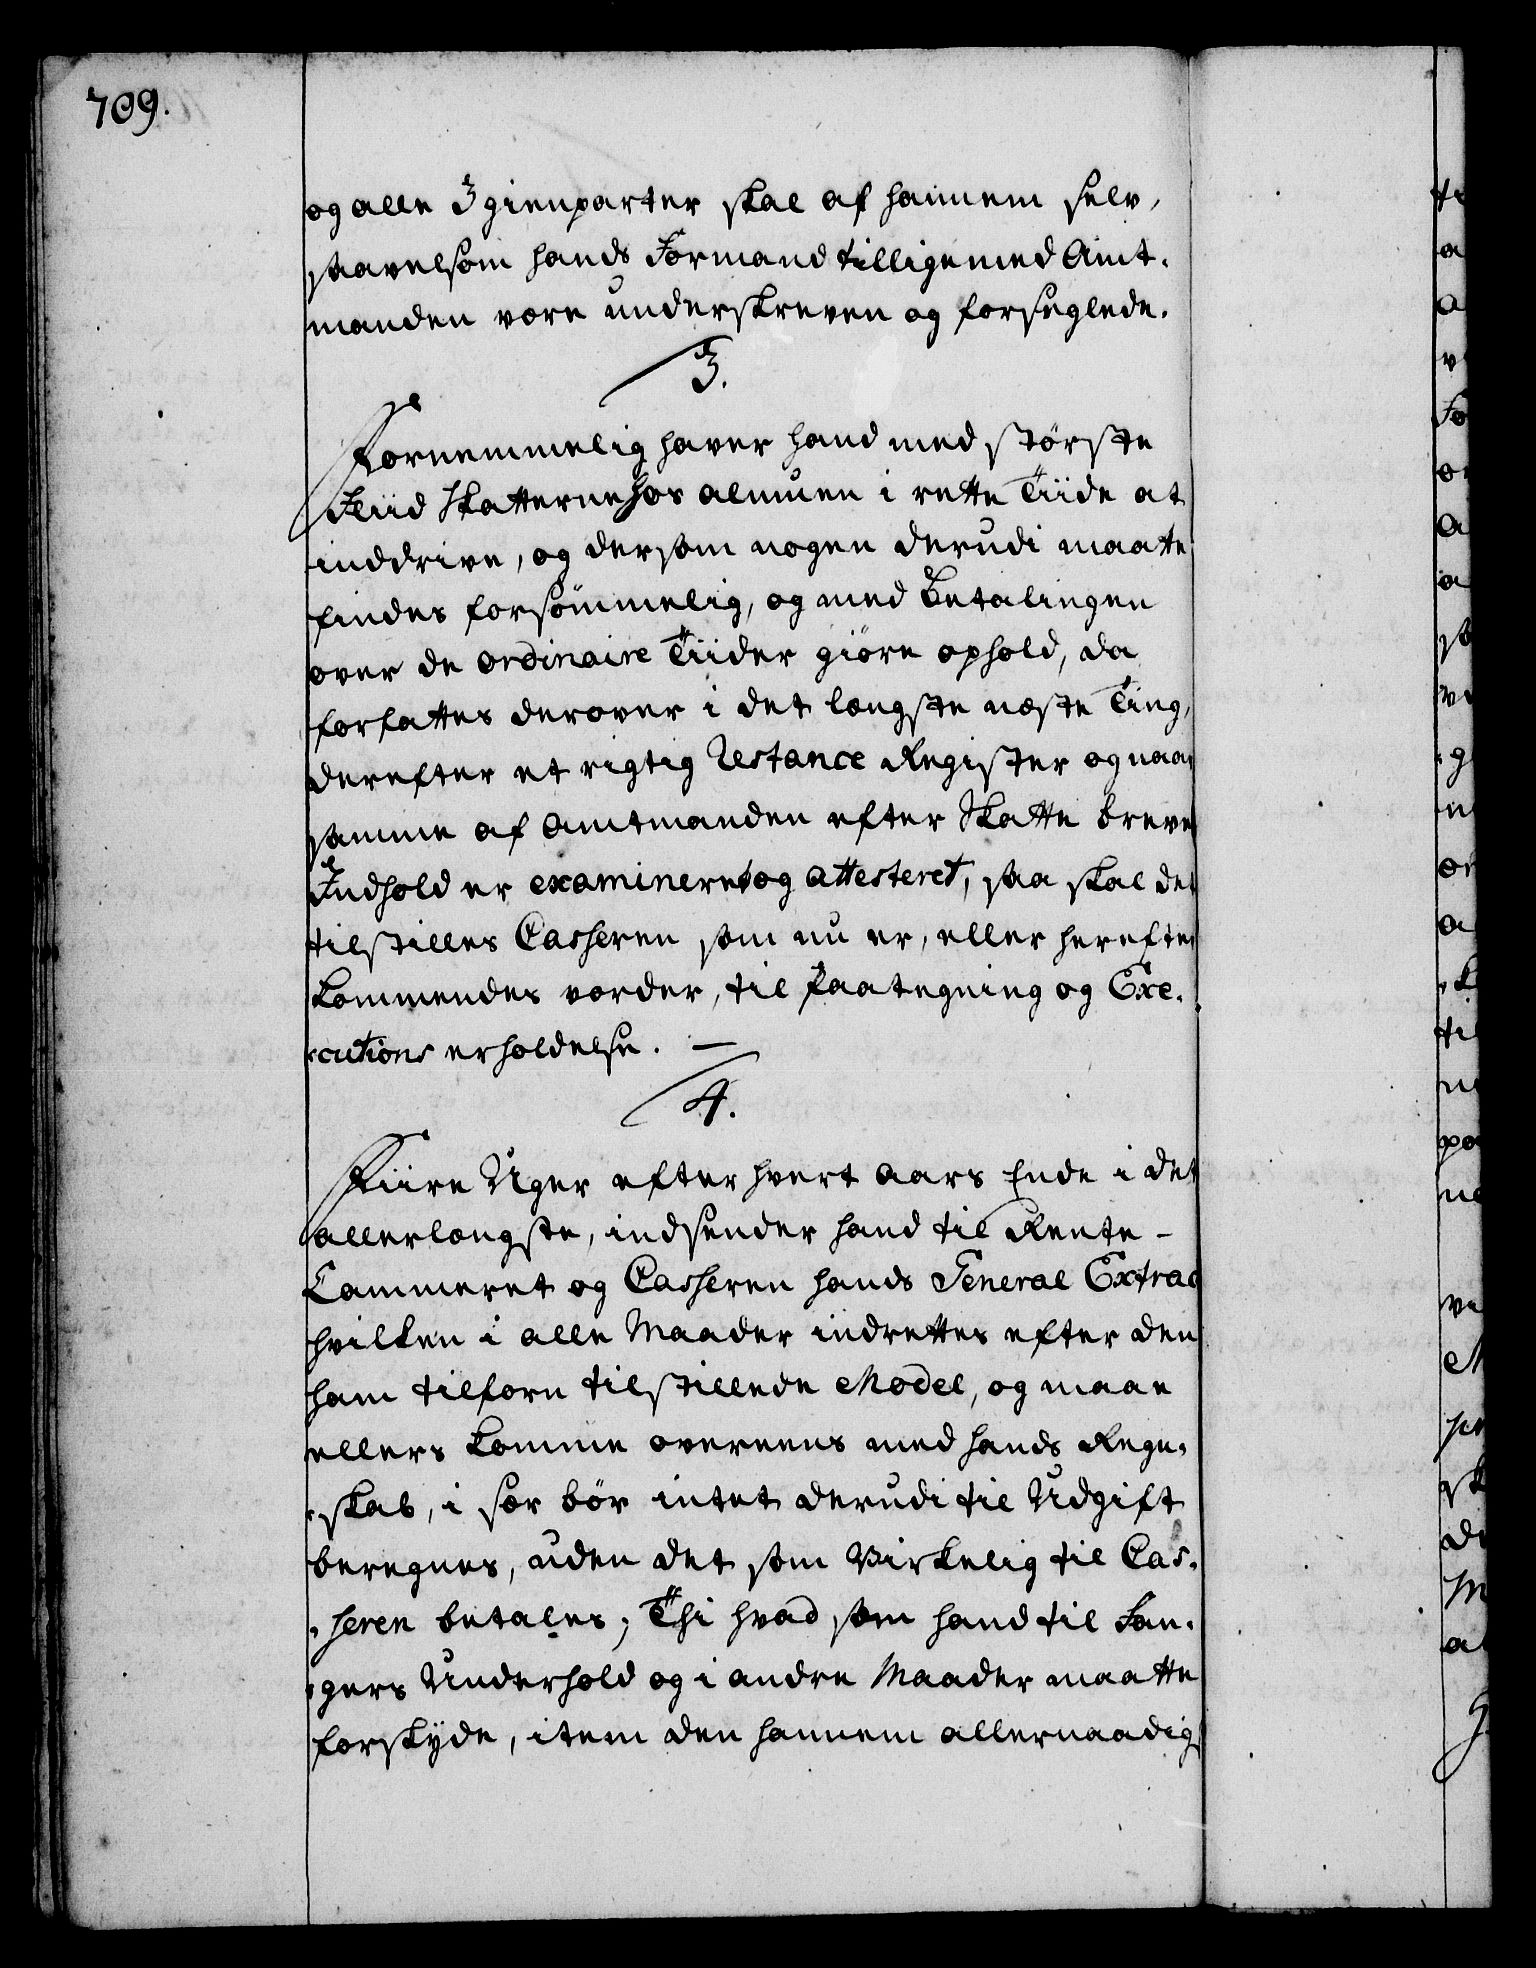 709.
og alle Igienparter skal af hannem selv,
saavelsom hands Formand tilligemed Amt-
manden være underskreven og forseglede.
3.
Fornemmelig haver hand med største
Fliid Skatterne hos almuen i rette Tiide at
inddrive, og dersom nogen derudi maatte
findes forsømmelig, og med Betalingen
over de ordinaire Tiider giøre ophold, da
forfattes derover i det længste næste Ting,
derefter et rigtig Restance Register og naar
samme af Amtmanden efter Skatte breves
Indhold er examineret og attesteret, saa skal det
tilstilles Casseren som nu er, eller herefter
kommendes vorder, til paategning og Exe-
cutions erholdelse. —
4.
Fiire Uger efter hvert Aars Ende i det
allerlængste, indsender hand til Rente-
Cammeret og Casseren hands General Extract
hvilken i alle Maader indrettes efter den
ham tilforn tilstillede Model, og maae
ellers komme overeens med hands Regn-
skab, i sær bør intet derudi til Udgift
beregnes, uden det som Virkelig til Cas-
seren betales; Thi hvad som hand til Fan-
gers Underhold og i andre Maader maatte
forskyde, item den hannem allernaadigst